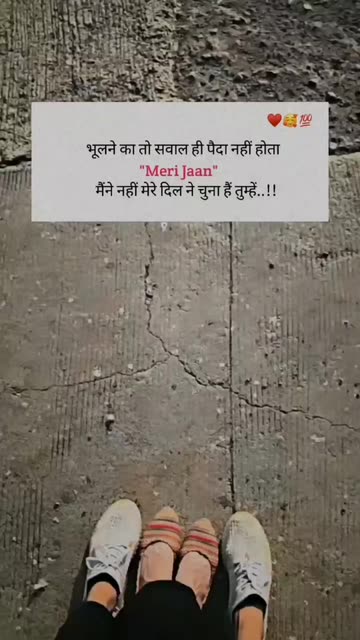 ♥️🥰💯
भूलने का तो सवाल ही पैदा नहीं होता
"Meri Jaan"
मैंने नहीं मेरे दिल ने चुना हैं तुम्हें..!!